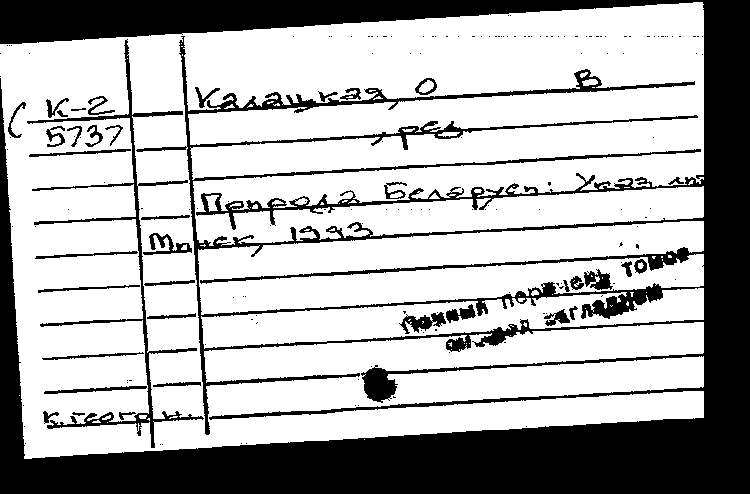 К-2
5737
Калацкая, О В
, ред.
Природа Беларуси: Указ. лит
Минск, 1993
Полный перечень томов
см. под заглавием
к. геогр. н.